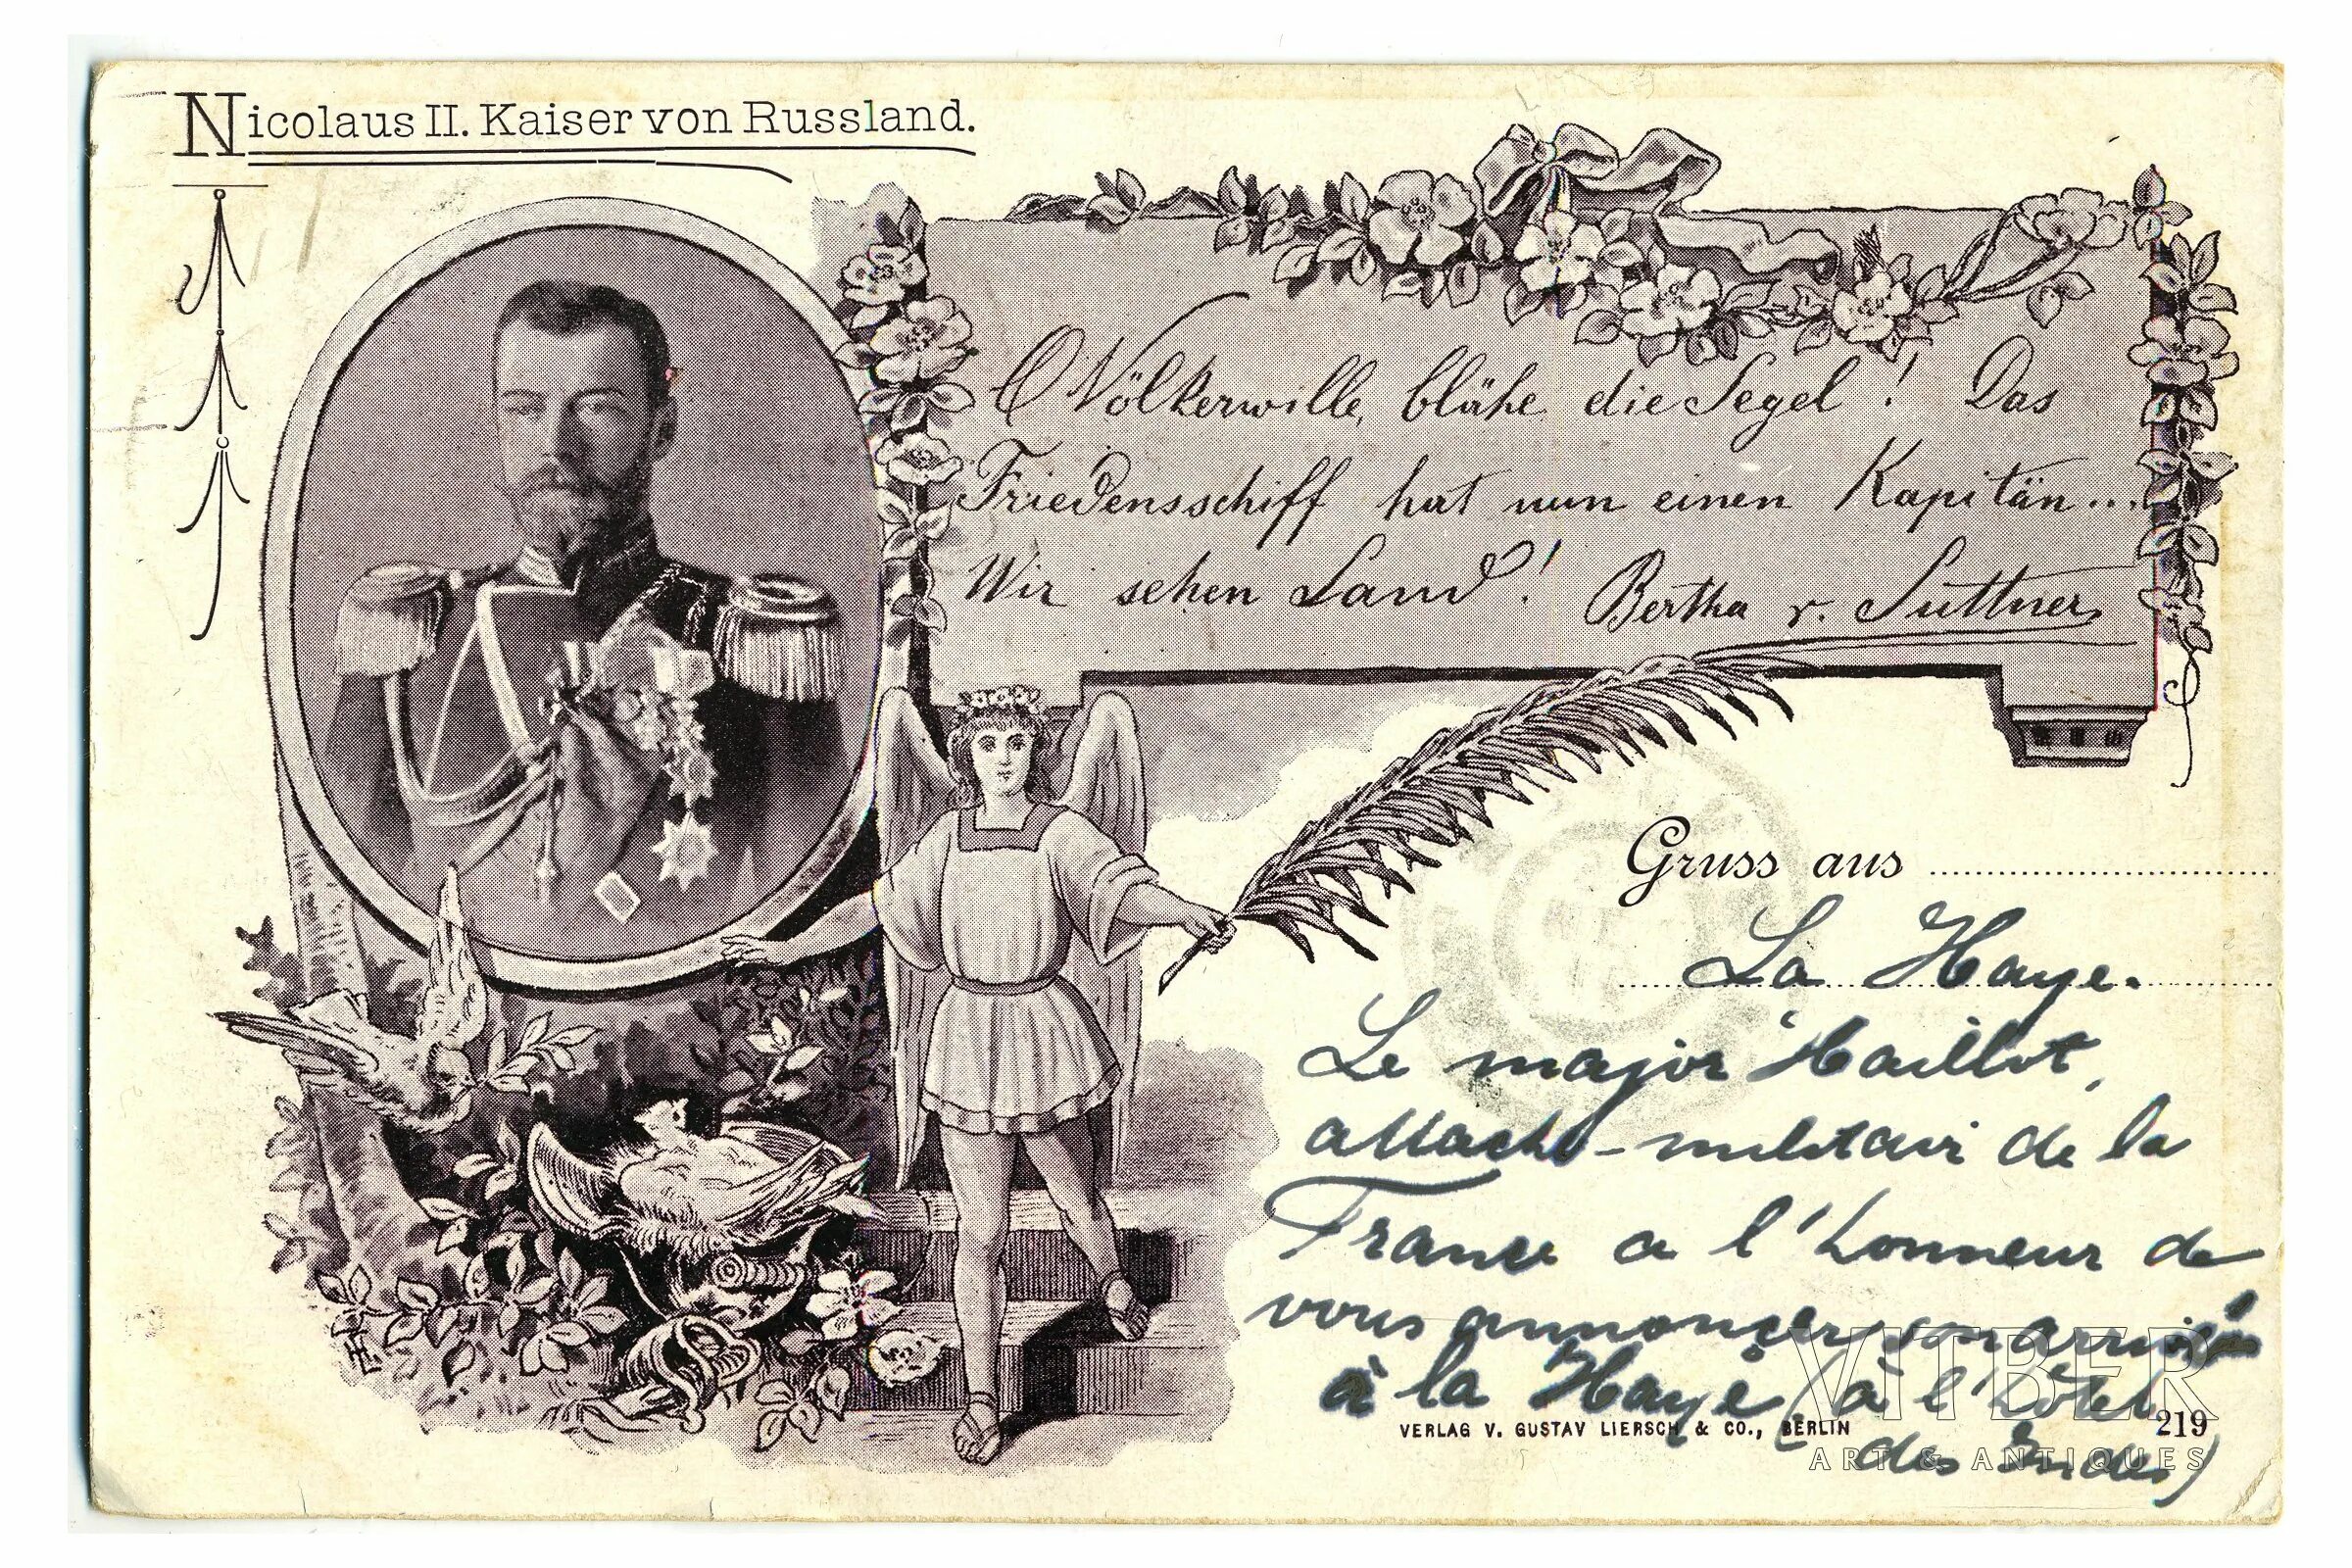 Nicolaus II. Kaiser von Russland.
O Völkerwille, blähe die Segel! Das
Friedensschiff hat nun einen Kapitän...
Wir sehen Land! Bertha v. Suttner
Gruss aus
La Haye.
Le major Haillot,
attaché-militaire de la
France a l'honneur de
vous annoncer son arrivée
à la Haye (à l'hôtel
des Indes)
VERLAG V. GUSTAV LIERSCH & CO., BERLIN
219
VITBER
ART & ANTIQUES